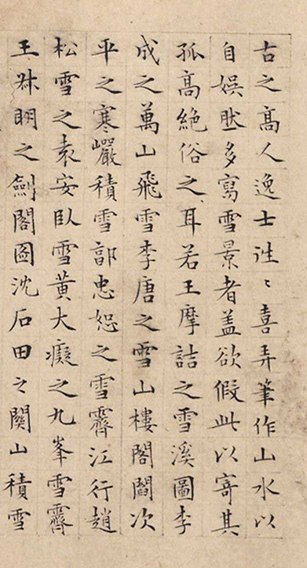 古之高人逸士往〻喜弄筆作山水以
自娛然多寫雪景者盖欲假此以寄其
孤高絶俗之耳若王摩詰之雪溪圖李
成之萬山飛雪李唐之雪山樓閣閻次
平之寒巖積雪郭忠恕之雪霽江行趙
松雪之袁安臥雪黃大癡之九峯雪霽
王叔明之劍閣圖沈石田之關山積雪